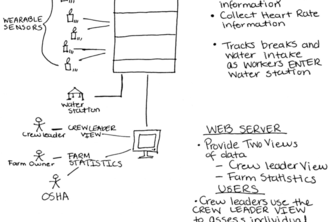 information
• Collect Heart Rate
information
WEARABLE
SENSORS
• Tracks breaks and
water intake
as workers ENTER
Water Station
Water
Station
Crew leader
CREW LEADER
VIEW
Farm Owner
FARM
STATISTICS
OSHA
WEB SERVER
• Provide Two Views
of data
- Crew leader View
- Farm Statistics
USERS
• Crew leaders use the
CREW LEADER VIEW
to assess individual